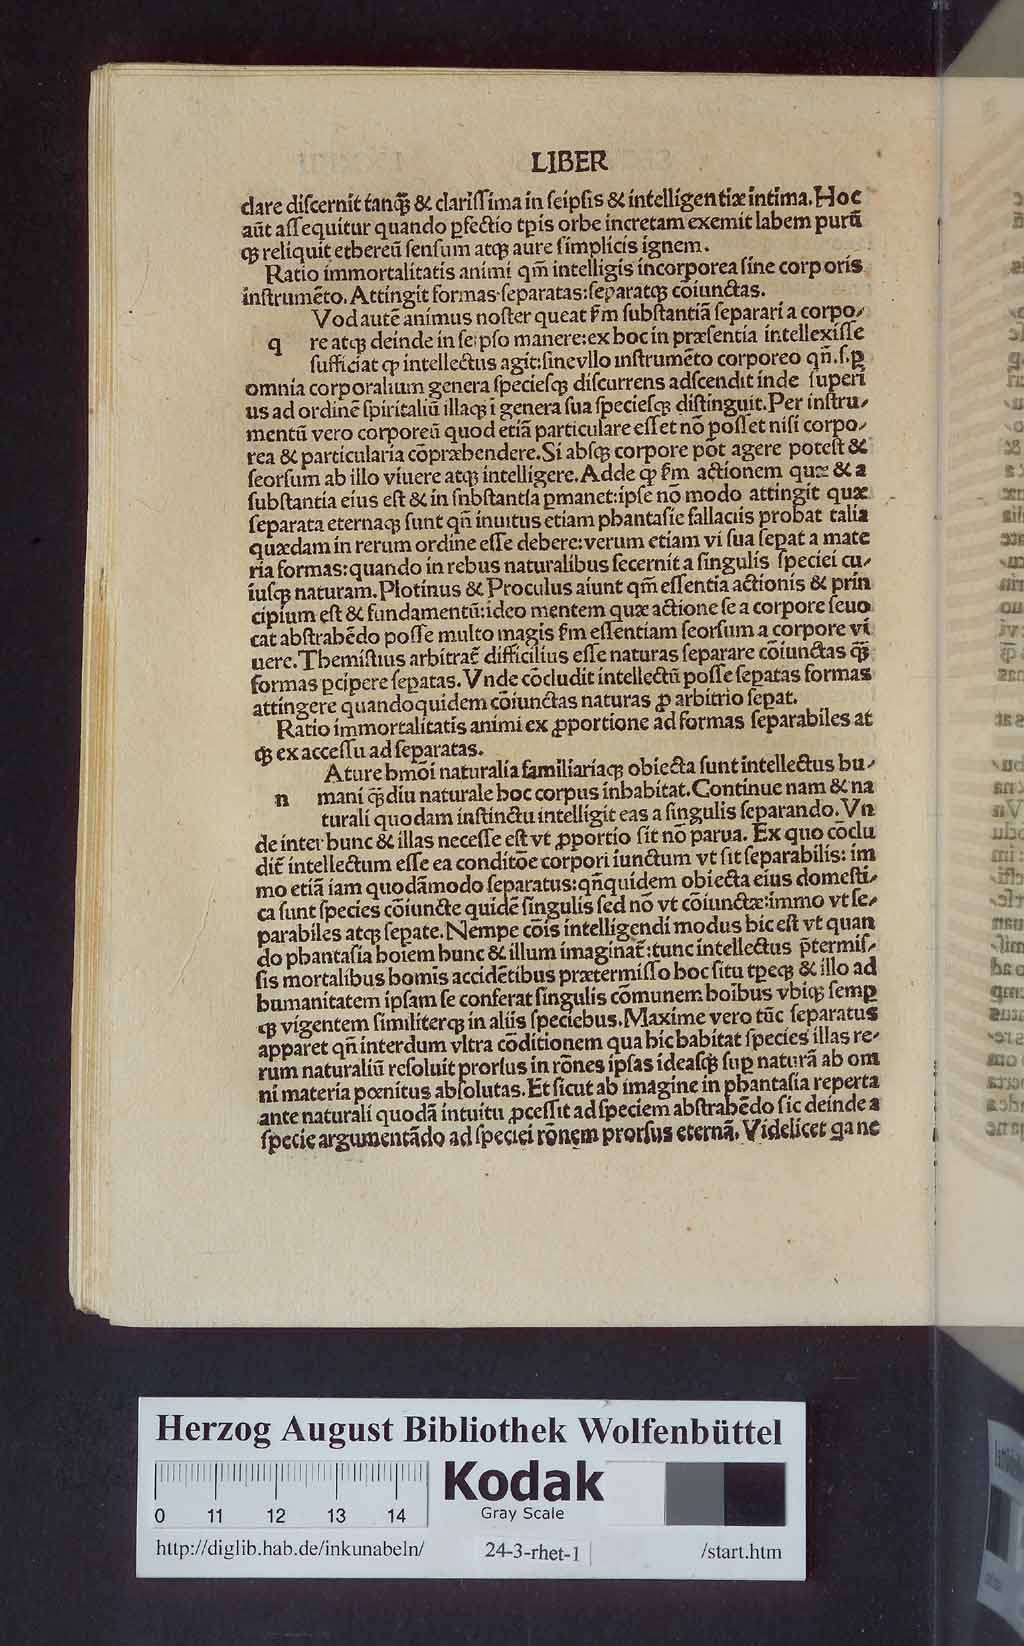 LIBER
clare discernit tanq̃ & clarissima in seipsis & intelligentiæ intima. Hoc
aũt assequitur quando ꝑfectio tꝑis orbe incretam exemit labem purũ
qꝫ reliquit ethereũ sensum atqꝫ aure simplicis ignem.
Ratio immortalitatis animi qm̃ intelligis incorporea sine corporis
instrumẽto. Attingit formas separatas: separatqꝫ cõiunctas.
Vod autẽ animus noster queat ẜm substantiã separari a corpo⸗
q re atqꝫ deinde in seipso manere: ex hoc in præsentia intellexisse
sufficiat ꝙ intellectus agit: sine vllo instrumẽto corporeo qñ .s. ꝑ
omnia corporalium genera speciesqꝫ discurrens adscendit inde superi
us ad ordinẽ spiritaliũ illaqꝫ ĩ genera sua speciesqꝫ distinguit. Per instru⸗
mentũ vero corporeũ quod etiã particulare esset nõ posset nisi corpo⸗
rea & particularia cõpræhendere. Si absqꝫ corpore põt agere potest &
seorsum ab illo viuere atqꝫ intelligere. Adde ꝙ ẜm actionem quæ & a
substantia eius est & in snbstantia ꝑmanet: ipse nõ modo attingit quæ
separata eternaqꝫ sunt qñ inuitus etiam phantasie fallaciis probat talia
quædam in rerum ordine esse debere: verum etiam vi sua seꝑat a mate
ria formas: quando in rebus naturalibus secernit a singulis speciei cu⸗
iusqꝫ naturam. Plotinus & Proculus aiunt qm̃ essentia actionis & prin
cipium est & fundamentũ: ideo mentem quæ actione se a corpore seuo
cat abstrahẽdo posse multo magis ẜm essentiam seorsum a corpore vi
uere. Themistius arbitrat̃ difficilius esse naturas separare cõiunctas q̃
formas ꝑcipere seꝑatas. Vnde cõcludit intellectũ posse seꝑatas formas
attingere quandoquidem cõiunctas naturas ꝓ arbitrio seꝑat.
Ratio immortalitatis animi ex ꝓportione ad formas separabiles at
qꝫ ex accessu ad separatas.
Ature hmõi naturalia familiariaqꝫ obiecta sunt intellectus hu⸗
n mani q̃diu naturale hoc corpus inhabitat. Continue nam & na
turali quodam instinctu intelligit eas a singulis separando. Vn
de inter hunc & illas necesse est vt ꝓportio sit nõ parua. Ex quo cõclu
dit̃ intellectum esse ea conditõe corpori iunctum vt sit separabilis: im
mo etiã iam quodãmodo separatus: qñquidem obiecta eius domesti⸗
ca sunt species cõiuncte quidẽ singulis sed nõ vt cõiunctæ: immo vt se⸗
parabiles atqꝫ seꝑate. Nempe cõis intelligendi modus hic est vt quan
do phantasia hoĩem hunc & illum imaginat̃: tunc intellectus p̃termis⸗
sis mortalibus homĩs accidẽtibus prætermisso hoc situ tꝑeqꝫ & illo ad
humanitatem ipsam se conferat singulis cõmunem hoĩbus vbiqꝫ semꝑ
qꝫ vigentem similiterqꝫ in aliis speciebus. Maxime vero tũc separatus
apparet qñ interdum vltra cõditionem qua hic habitat species illas re⸗
rum naturaliũ resoluit prorsus in rõnes ipsas ideasqꝫ suꝑ naturã ab om
ni materia pœnitus absolutas. Et sicut ab imagine in phantasia reperta
ante naturali quodã intuitu ꝓcessit ad speciem abstrahẽdo sic deinde a
specie argumentãdo ad speciei rõnem prorsus eternã. Videlicet ga ne
Herzog August Bibliothek Wolfenbüttel
0 11 12 13 14
Kodak
Gray Scale
http://diglib.hab.de/inkunabeln/ 24-3-rhet-1 /start.htm